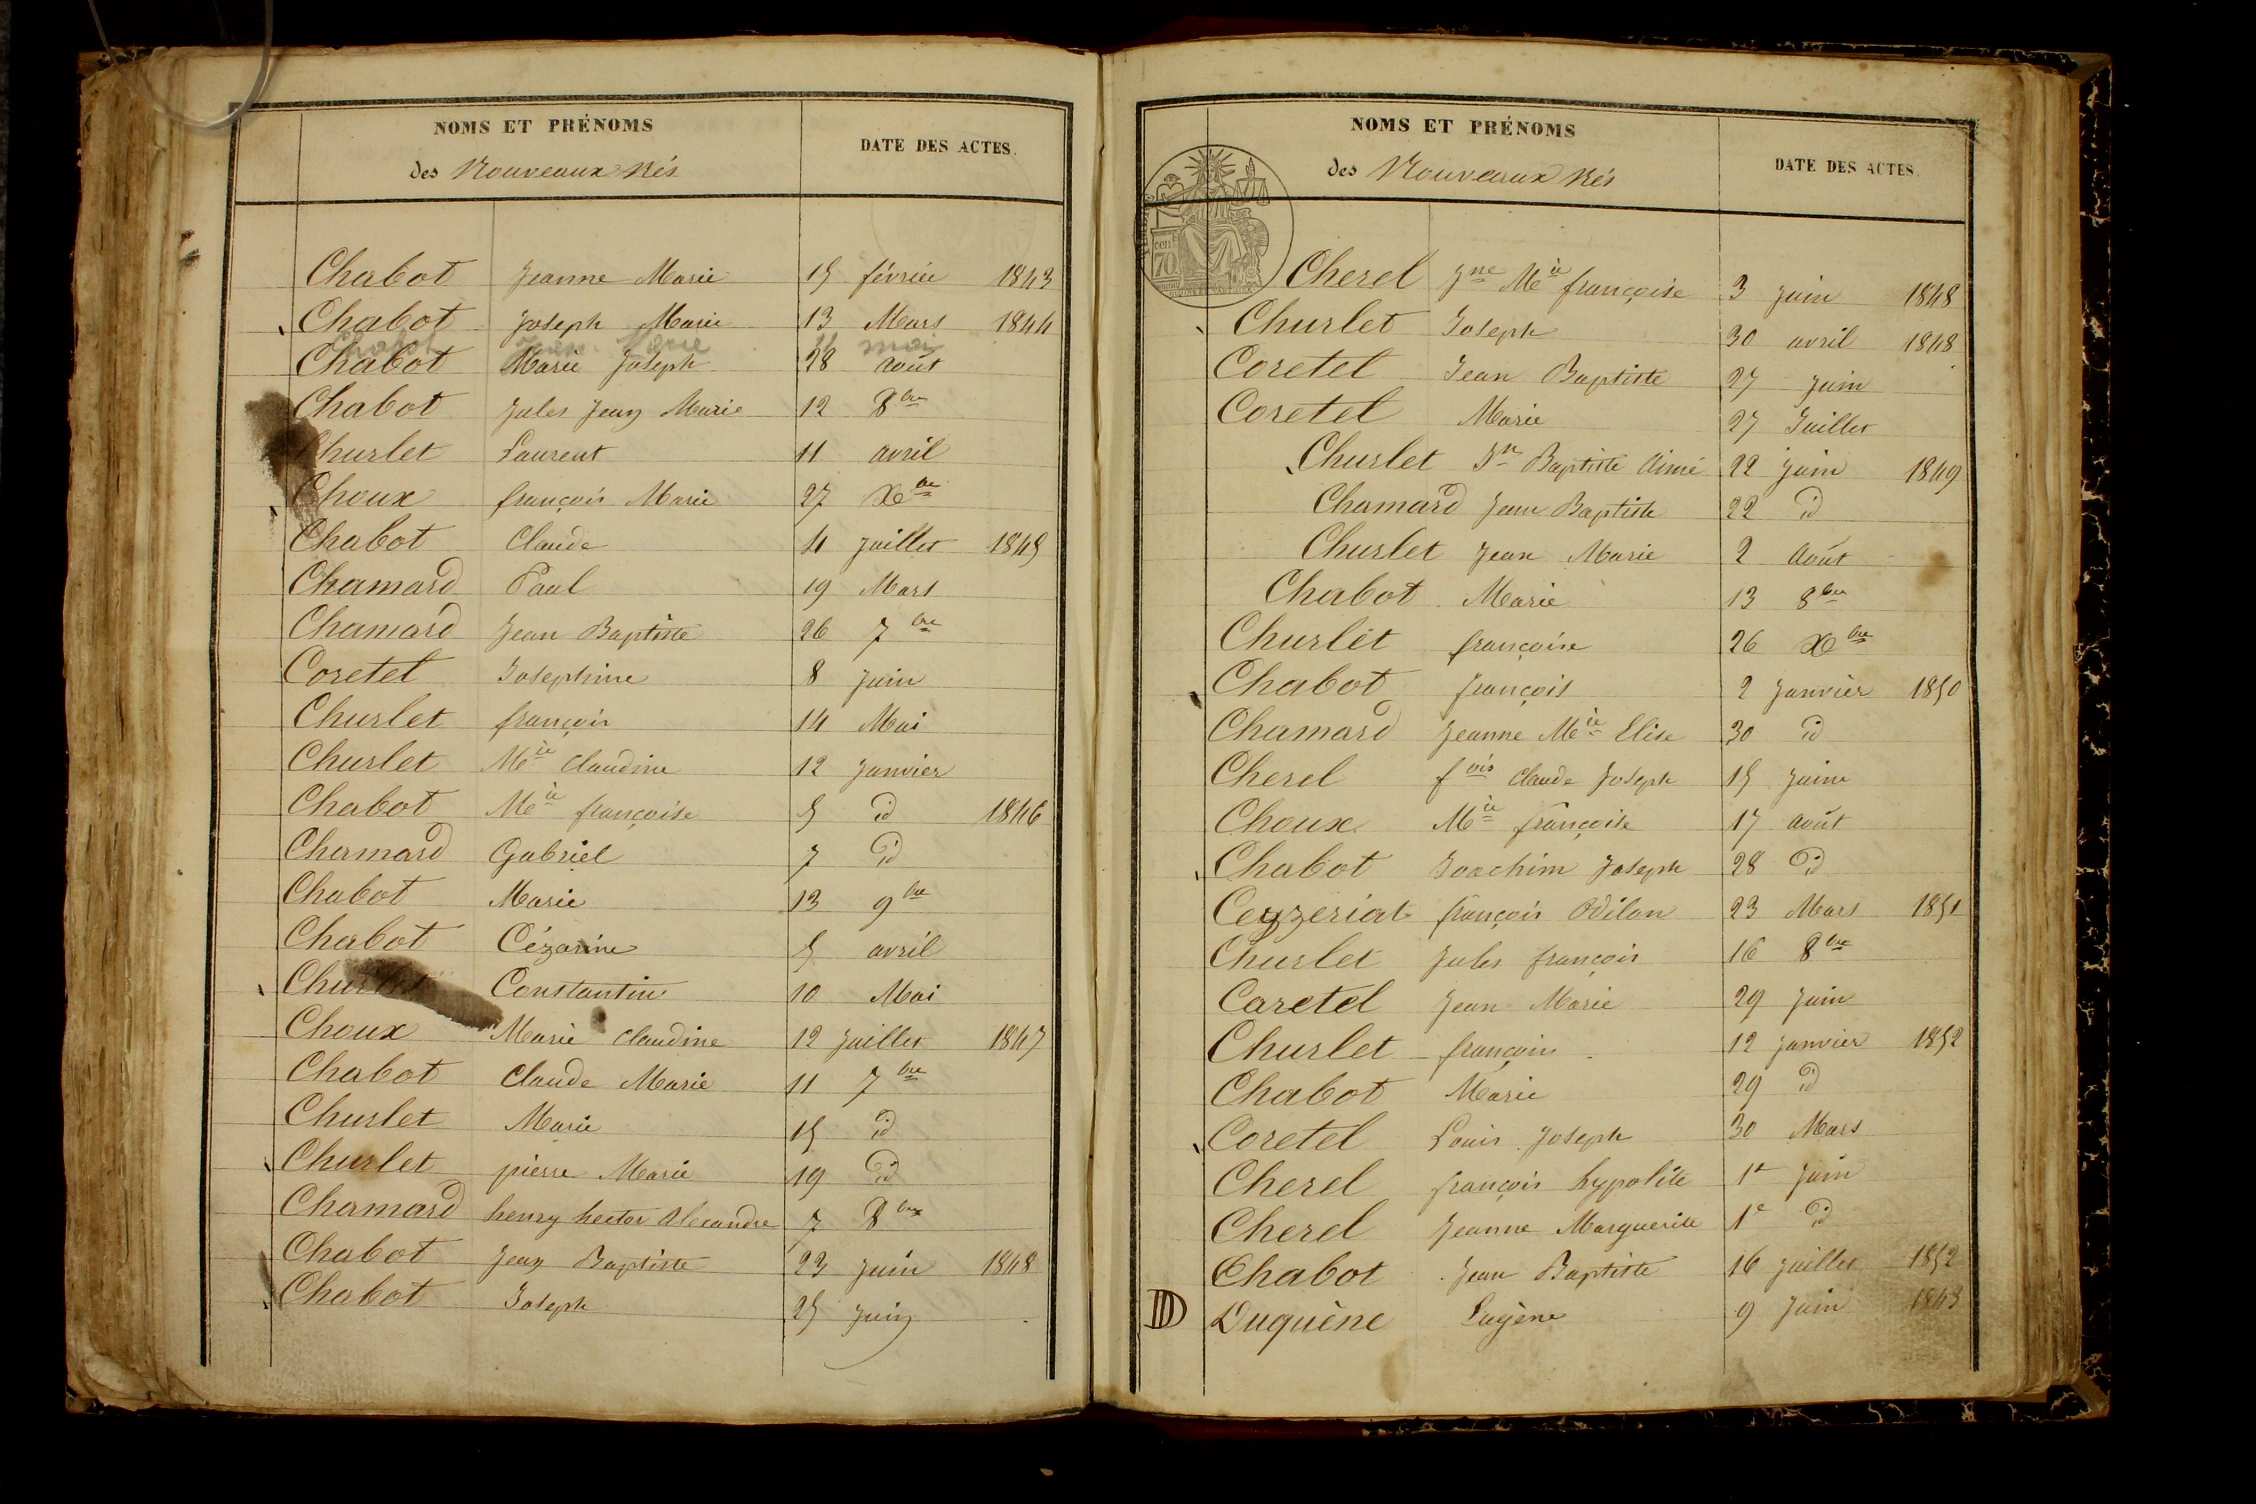 NOMS ET PRÉNOMS
des Nouveaux Nés
DATE DES ACTES.
Chabot Jeanne Marie 15 février 1843
Chabot Joseph Marie 13 Mars 1844
Chabot Marie mai
Chabot Marie Joseph 28 août
Chabot Jules Jean Marie 12 8bre
Churlet Laurent 11 avril
Choux françois Marie 27 Xbre
Chabot Claude 4 juillet 1845
Chamard Paul 19 Mars
Chamard Jean Baptiste 26 7bre
Coretel Josephine 8 juin
Churlet françois 14 Mai
Churlet Mie Claudine 12 janvier
Chabot Mie françoise 5 id 1846
Chamard Gabriel 7 id
Chabot Marie 13 9bre
Chabot Cézarine 5 avril
Churlet Constantin 10 Mai
Choux Marie Claudine 12 juillet 1847
Chabot Claude Marie 11 7bre
Churlet Marie 15 id
Churlet pierre Marie 19 id
Chamard henry hector Alexandre 7 8bre
Chabot Jean Baptiste 23 juin 1848
Chabot Joseph 25 juin
NOMS ET PRÉNOMS
des Nouveaux Nés
DATE DES ACTES.
cent 70
Cherel Jne Mie françoise 3 juin 1848
Churlet Joseph 30 avril 1848
Coretel Jean Baptiste 27 juin
Coretel Marie 27 Juillet
Churlet Jn Baptiste Aimé 22 juin 1849
Chamard Jean Baptiste 22 id
Churlet Jean Marie 2 Août
Chabot Marie 13 8bre
Churlet françoise 26 Xbre
Chabot françois 2 janvier 1850
Chamard Jeanne Mie Elise 30 id
Cherel fois Claude Joseph 15 juin
Choux Mie françoise 17 août
Chabot Joachim Joseph 28 id
Ceyzeriat françois Odilon 23 Mars 1851
Churlet Jules françois 16 8bre
Caretel Jean Marie 29 juin
Churlet françois 12 janvier 1852
Chabot Marie 29 id
Coretel Louis Joseph 30 Mars
Cherel françois hypolite 1er juin
Cherel Jeanne Marguerite 1e id
Chabot Jean Baptiste 16 juillet 1852
D Duquène Eugène 9 Juin 1843